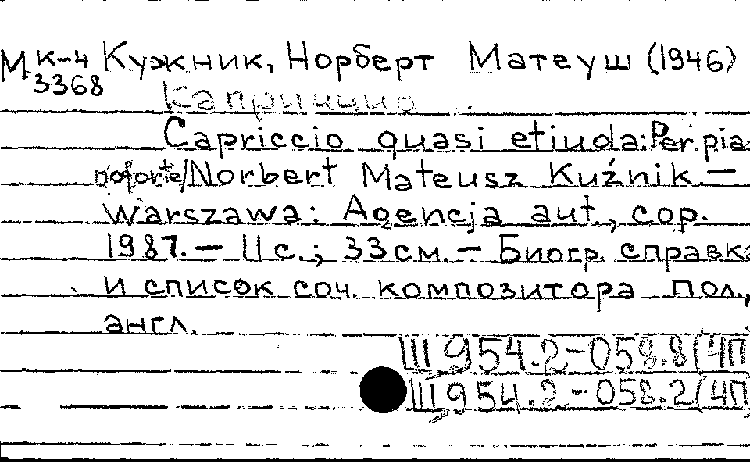 МК-4 Кужник, Норберт Матеуш (1946)
3368 Каприччио
Capriccio quasi etiuda: Per pia-
noforte/Norbert Mateusz Kuźnik.—
Warszawa: Agencja aut., cop.
1987.— 11 с.; 33 см.— Биогр. справка
и список соч. композитора пол.,
англ.
Ш 954.2-058.8(4П
Ш 954.2-058.2(4П